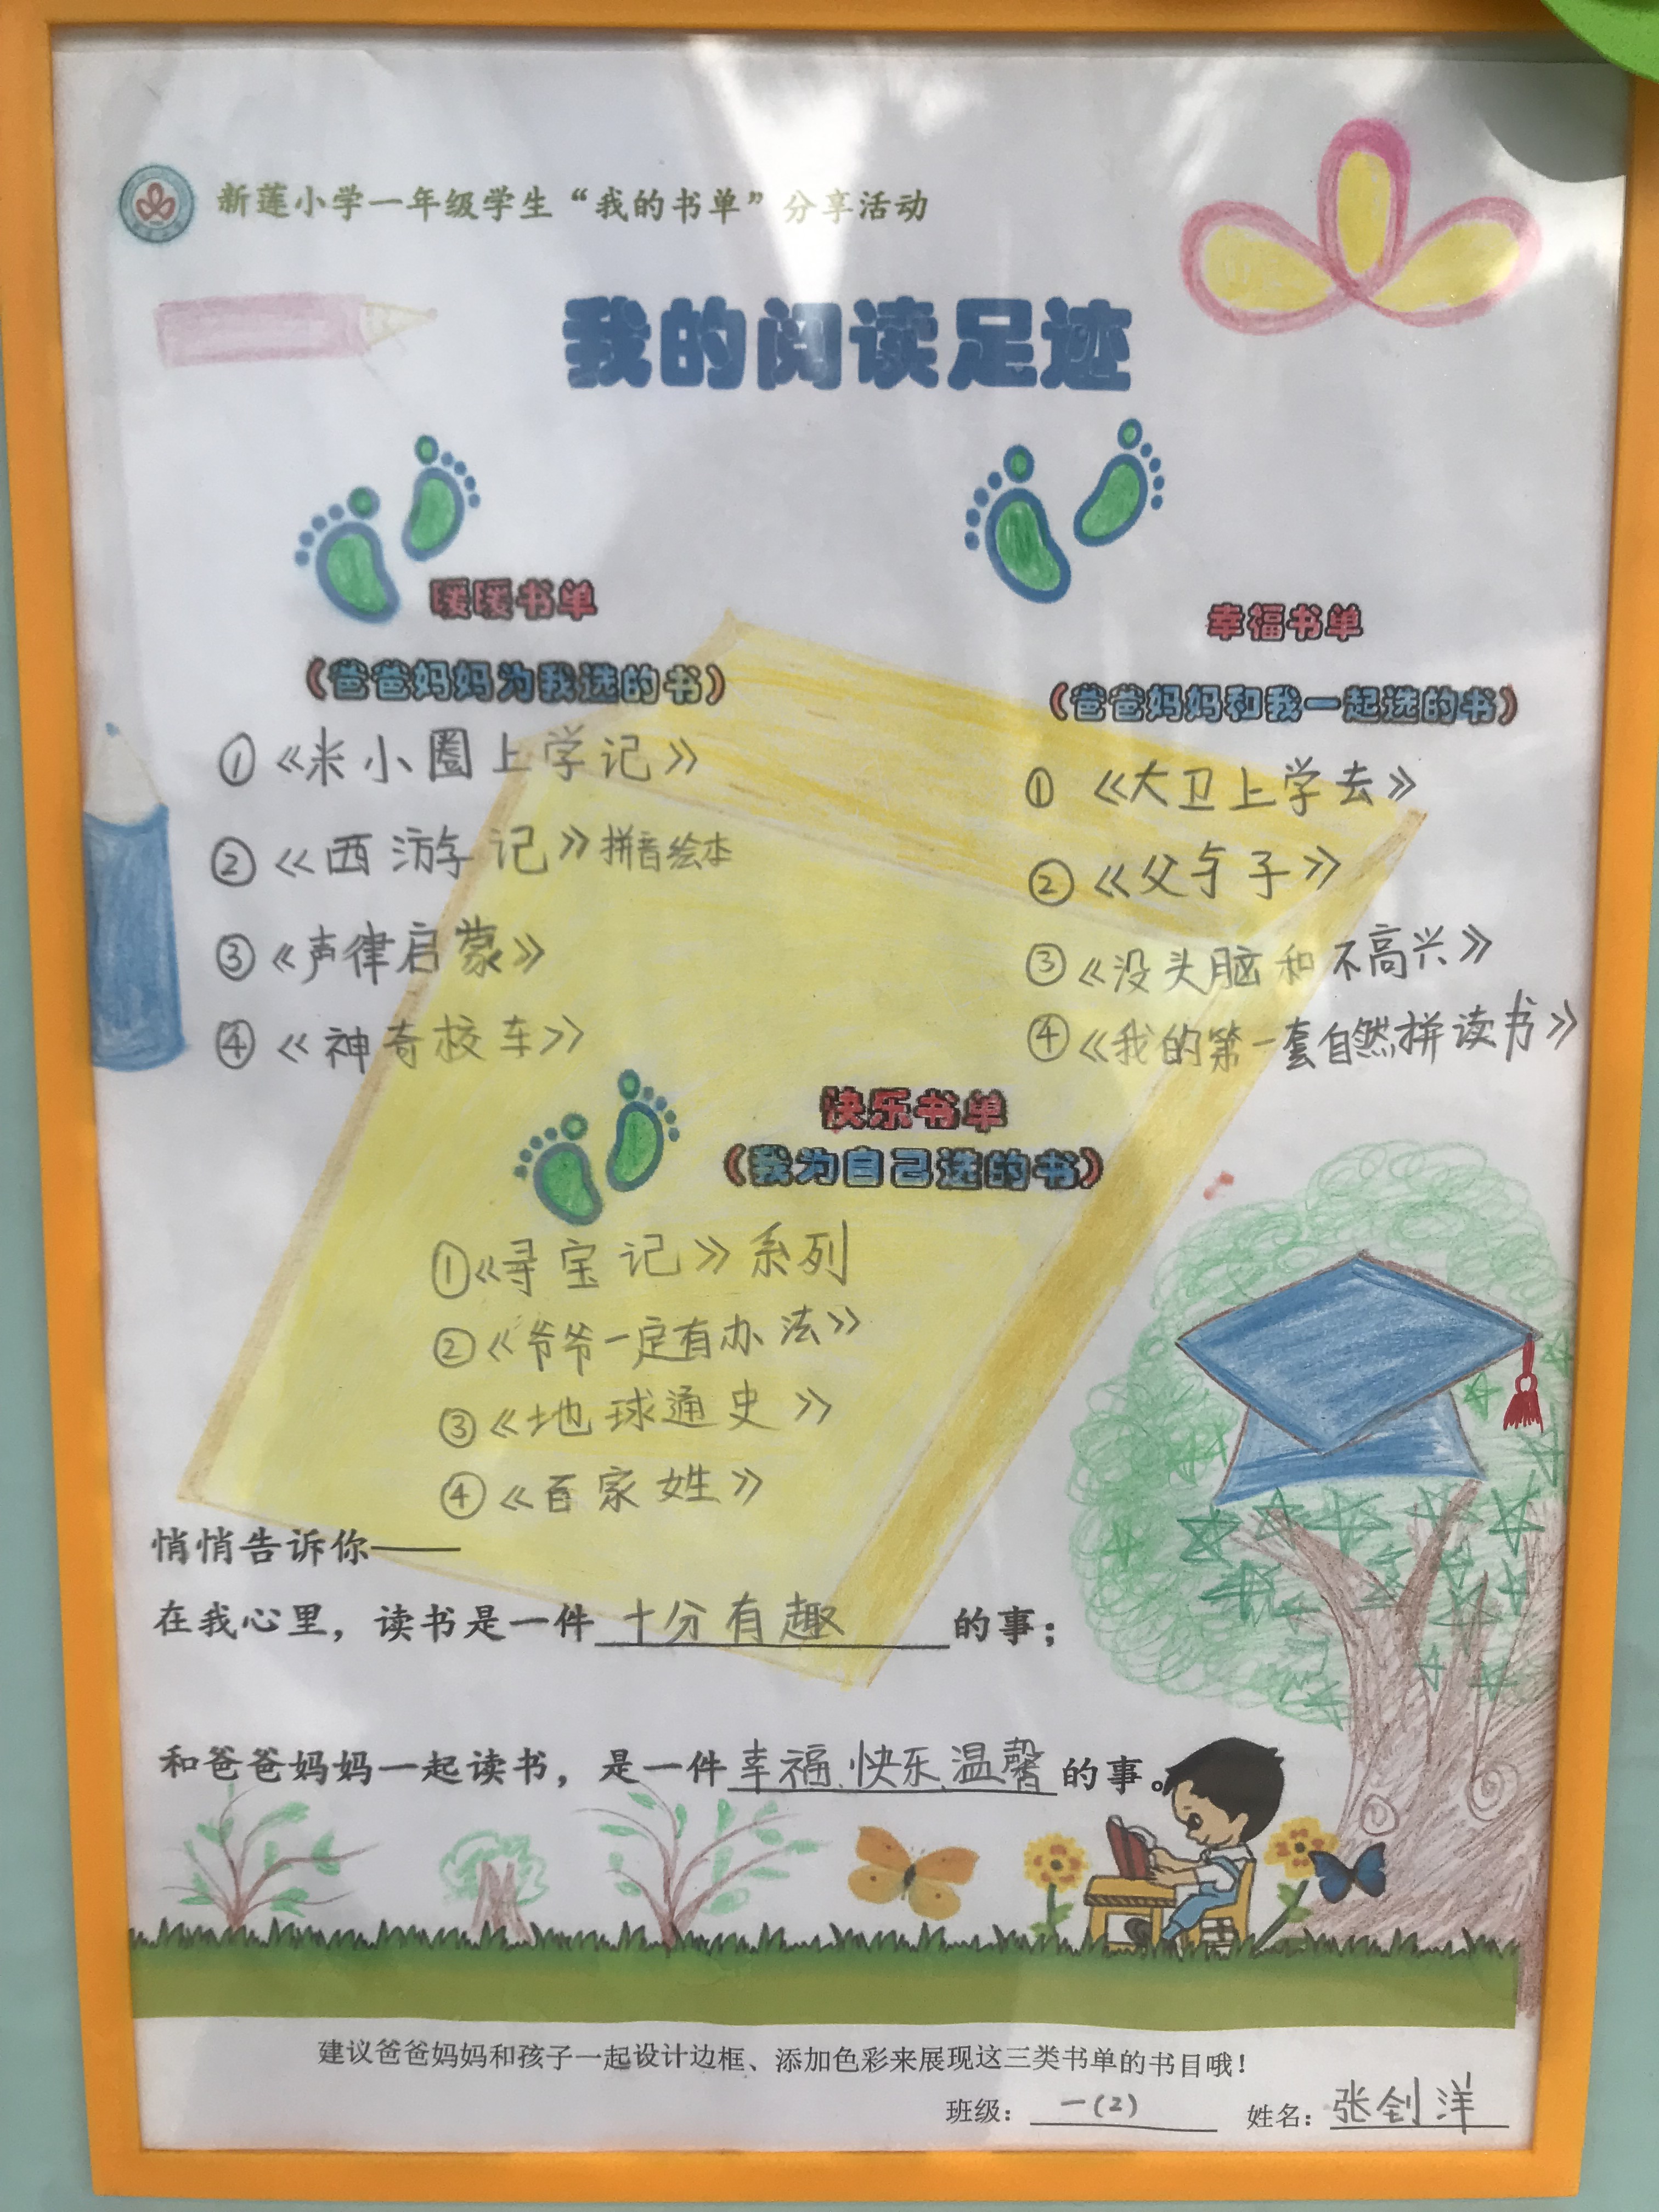 新莲小学一年级学生“我的书单”分享活动
我的阅读足迹
暖暖书单
(爸爸妈妈为我选的书)
①《米小圈上学记》
②《西游记》拼音绘本
③《声律启蒙》
④《神奇校车》
幸福书单
(爸爸妈妈和我一起选的书)
①《大卫上学去》
②《父与子》
③《没头脑和不高兴》
④《我的第一套自然拼读书》
快乐书单
(我为自己选的书)
①《寻宝记》系列
②《爷爷一定有办法》
③《地球通史》
④《百家姓》
悄悄告诉你——
在我心里，读书是一件十分有趣的事；
和爸爸妈妈一起读书，是一件幸福、快乐、温馨的事。
建议爸爸妈妈和孩子一起设计边框、添加色彩来展现这三类书单的书目哦！
班级：一(2) 姓名：张钊洋